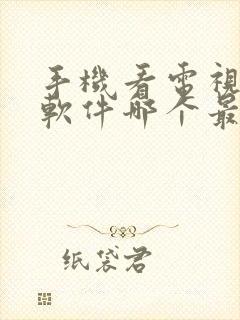 手機看電視
軟件哪个最
纸袋君